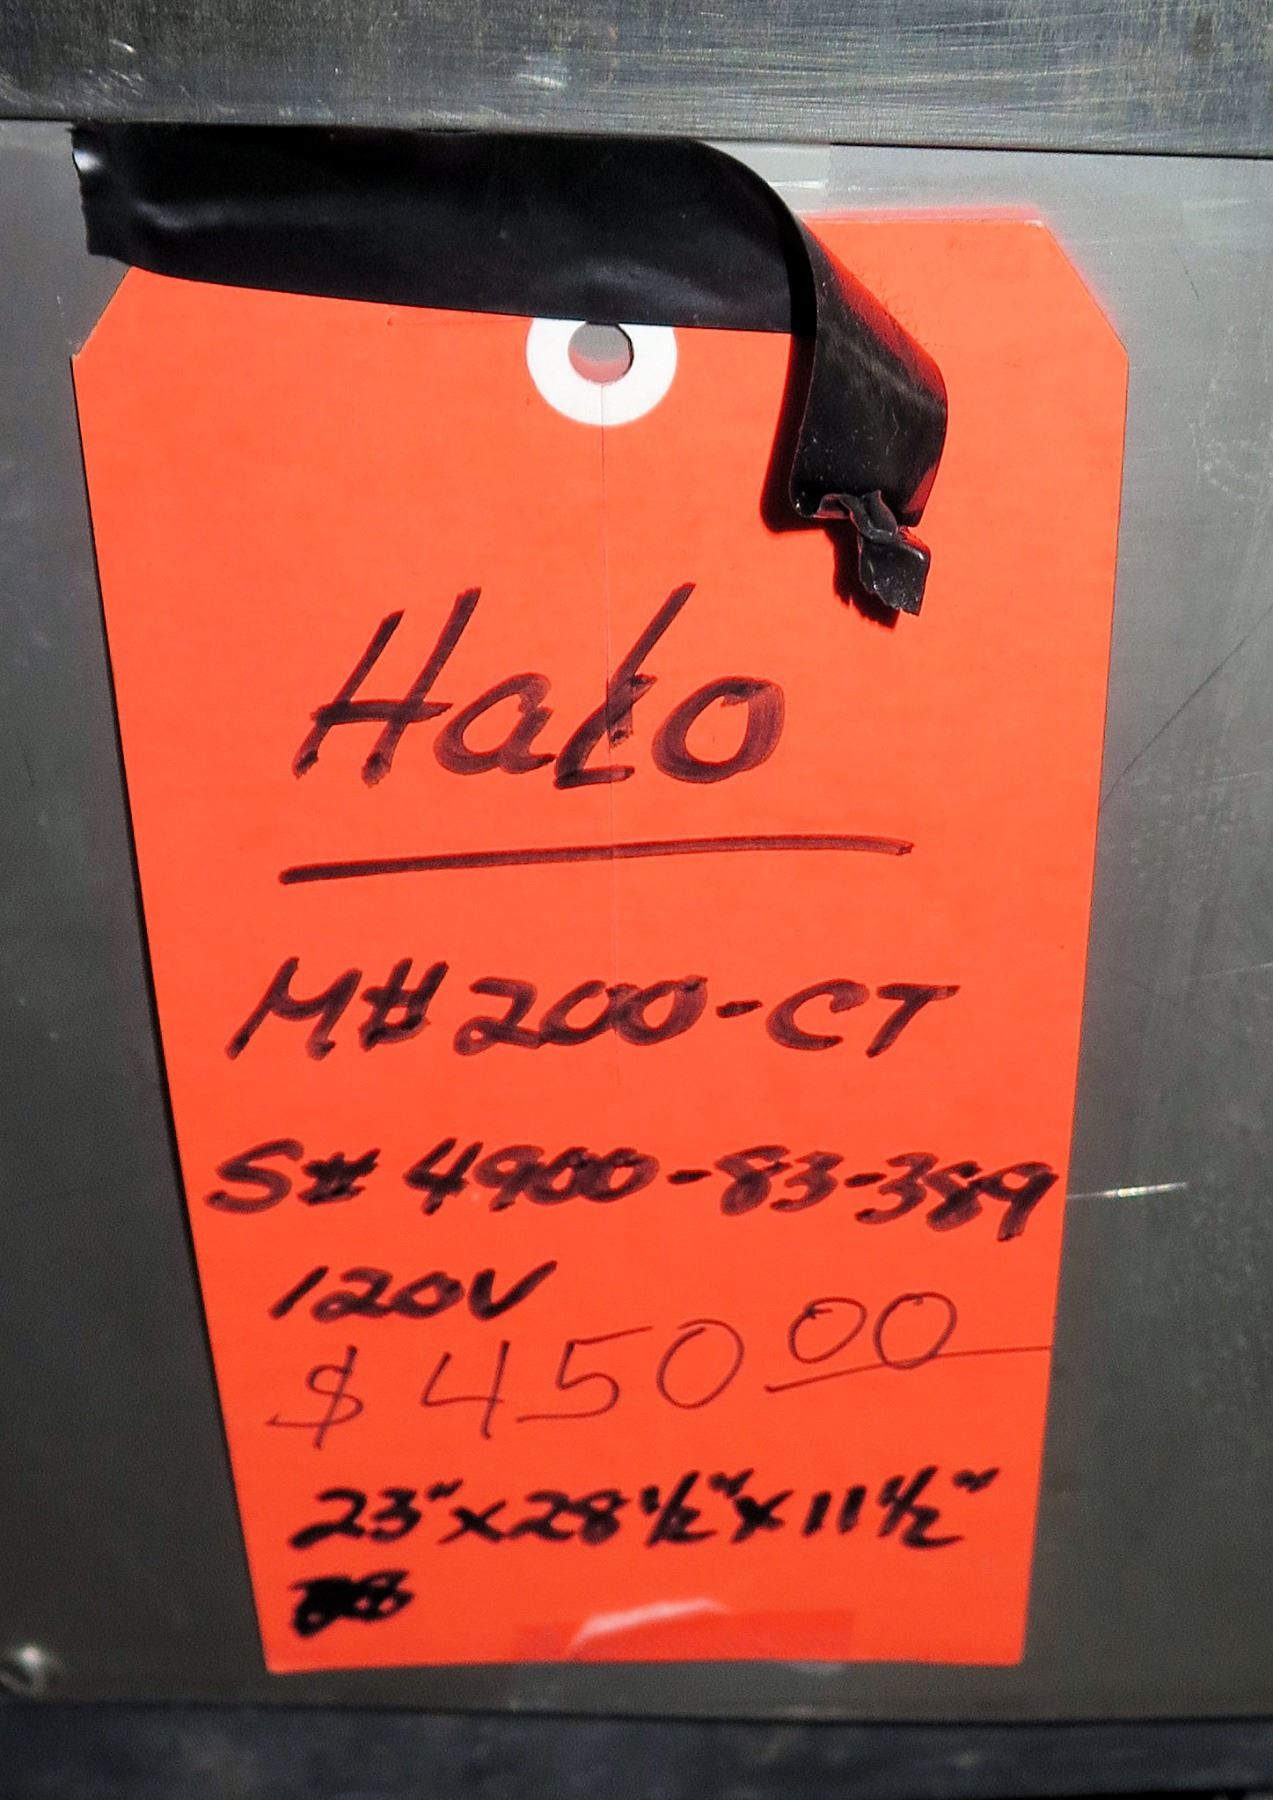 Halo
M# 200-CT
S# 4900-83-389
120V
$ 450 00
23" x 28 1/2" x 11 1/2"